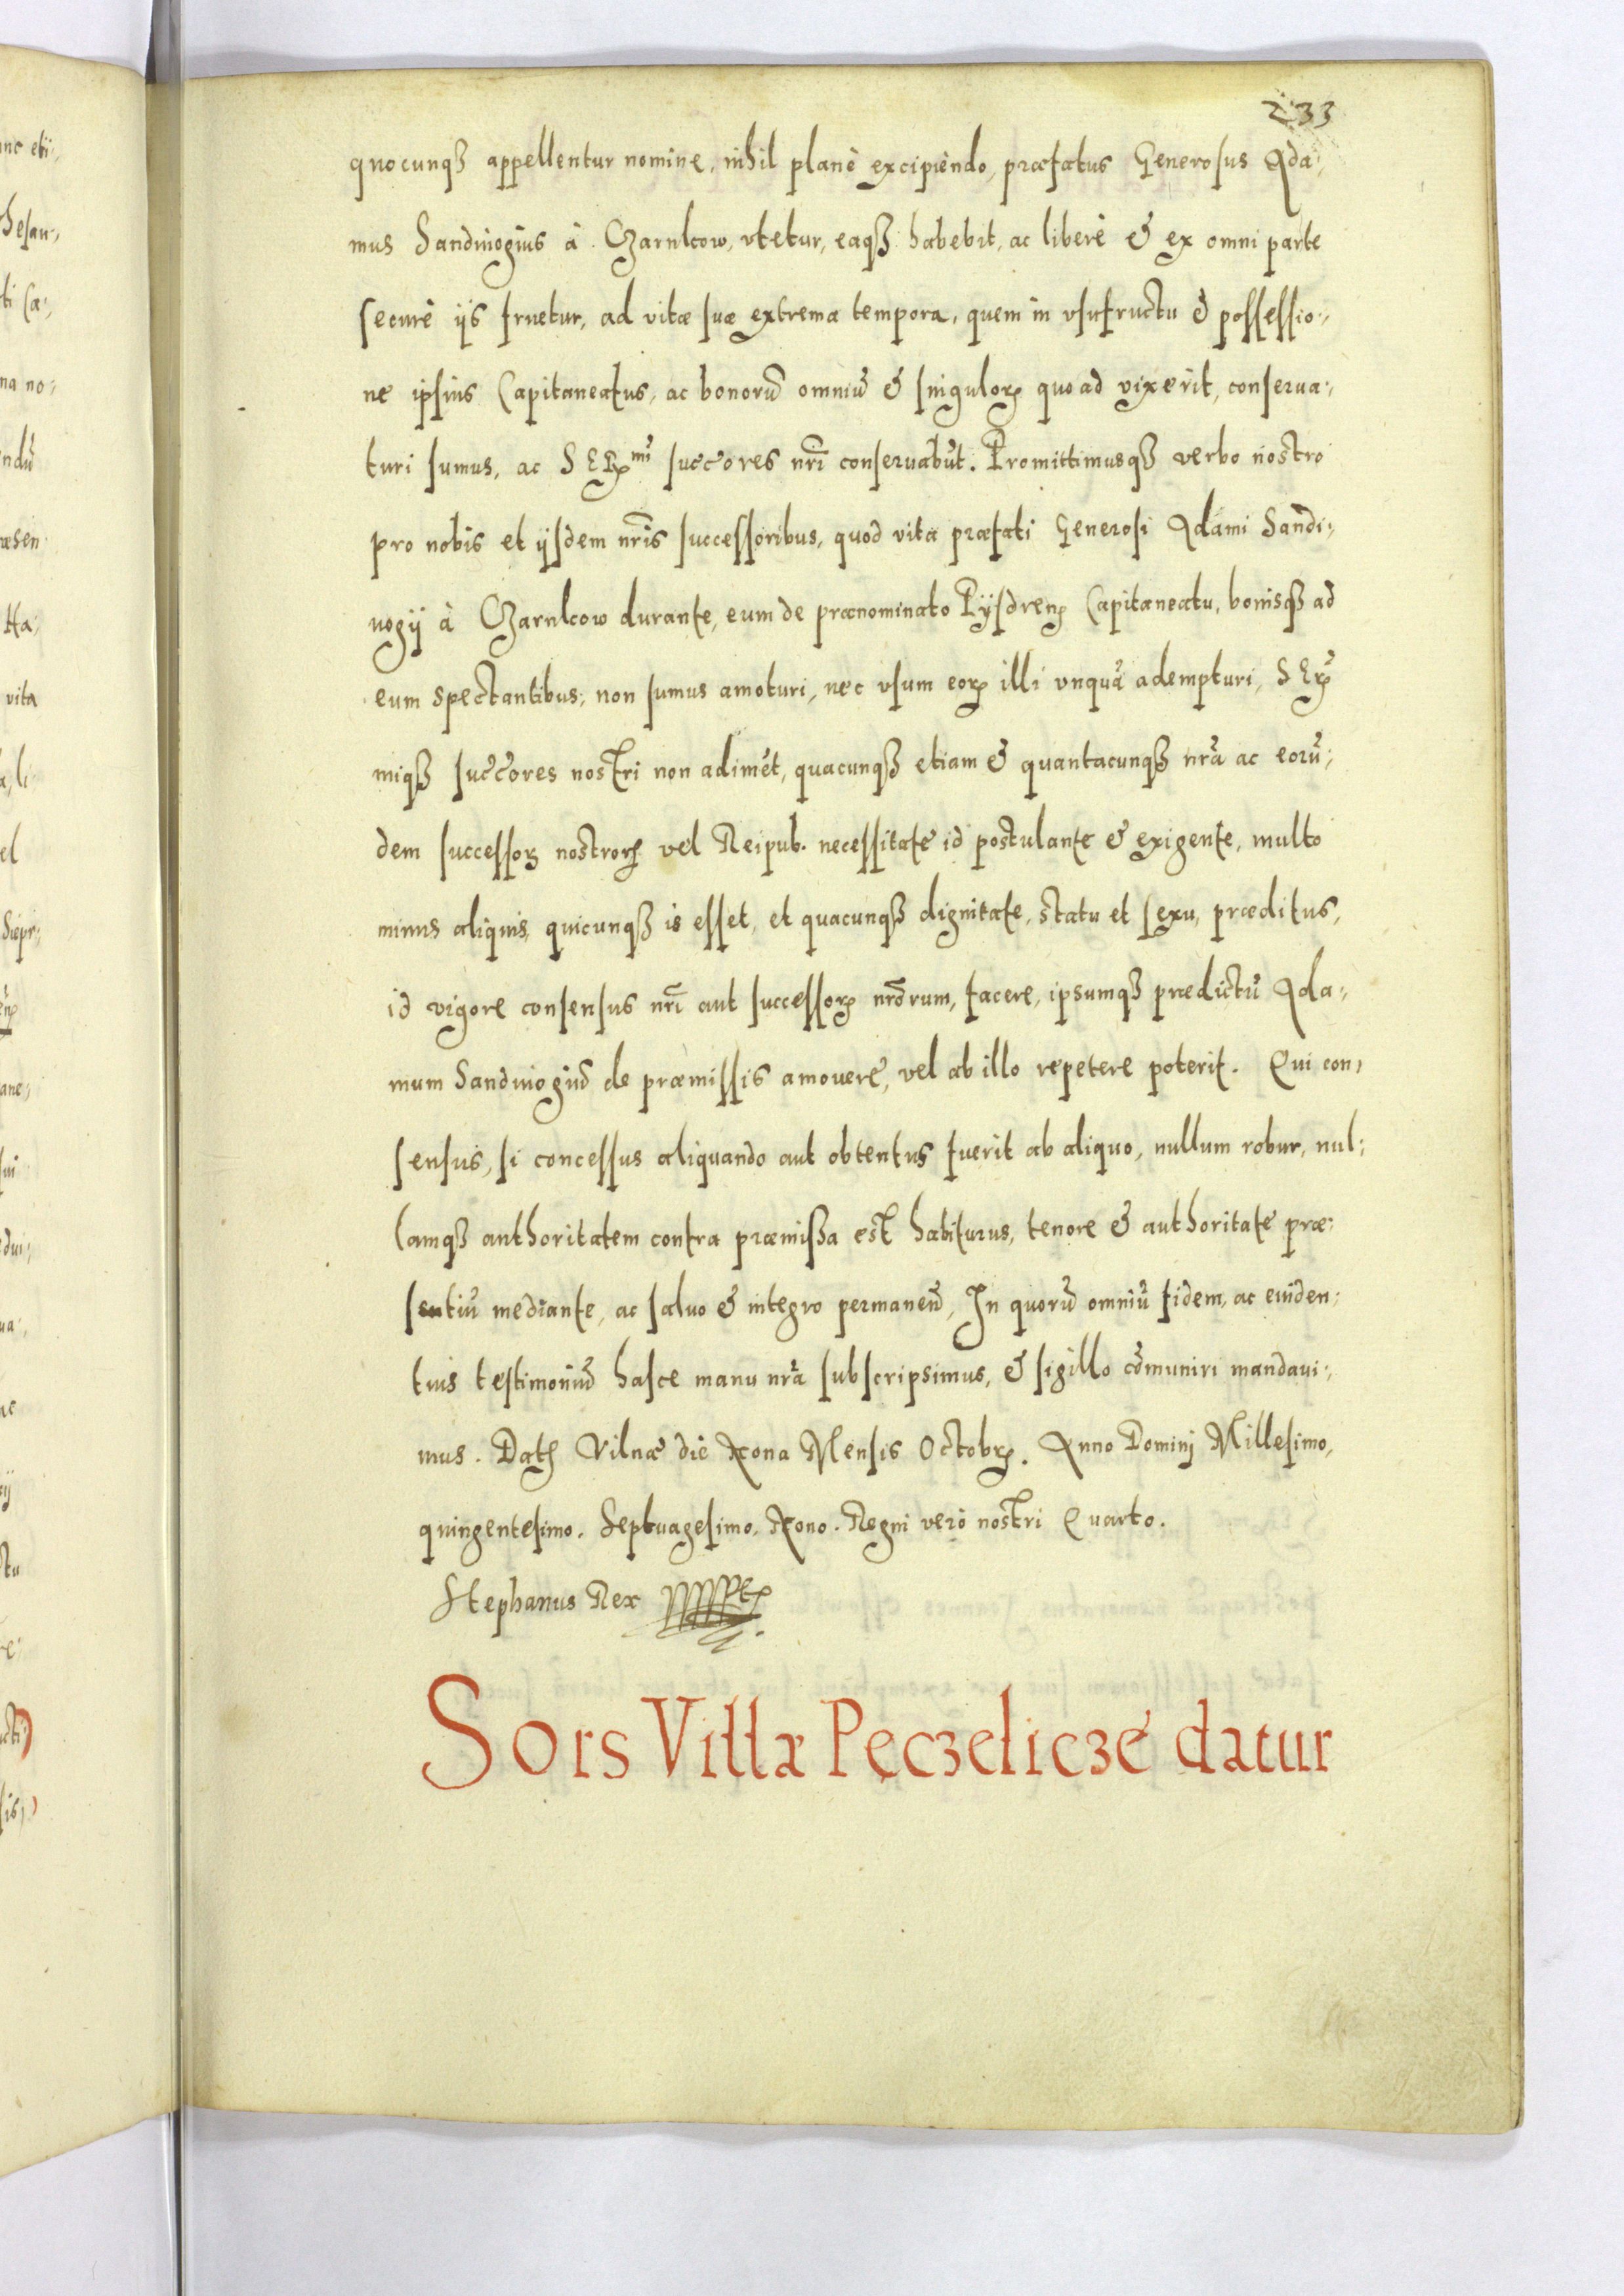 233
quocunqȝ appellentur nomine, nihil planè excipiendo, præfatus Generosus Ada:
mus Sandiuogius à Czarnkow, vtetur, eaqȝ habebit, ac liberè & ex omni parte
securè ijs fruetur, ad vitæ suæ extrema tempora, quem in vsufructu & possessio:
ne ipsius Capitaneatus, ac bonorū omniū & singuloꝝ quoad vixerit, conserua:
turi sumus, ac SERmi succōres nr̄i conseruabūt. Promittimusqȝ verbo nostro
pro nobis et ijsdem nr̄is successoribus, quod vita præfati Generosi Adami Sandi:
uogij à Czarnkow durante, eum de prænominato Pyſdreñ Capitaneatu, bonisqȝ ad
eum spectantibus, non sumus amoturi, nec vsum eoꝝ illi vnquā adempturi, SER
miqȝ succōres nostri non adimēt, quacunqȝ etiam & quantacunqȝ nr̄a ac eorū:
dem successoꝝ nostroꝝ vel Reipub. necessitate id postulante & exigente, multo
minus aliquis, quicunqȝ is esset, et quacunqȝ dignitate, statu et sexu, præditus,
id vigore consensus nr̄i aut successoꝝ nr̄orum, facere, ipsumqȝ prædictū Ada:
mum Sandiuogiū de præmissis amouere, vel ab illo repetere poterit. Qui con:
sensus, si concessus aliquando aut obtentus fuerit ab aliquo, nullum robur, nul:
lamqȝ authoritatem contra præmißa est habiturus, tenore & authoritate præ:
sentiū mediante, ac saluo & integro permaneñ, In quorū omniū fidem, ac euiden:
tius testimoniū hasce manu nr̄a subscripsimus, & sigillo cōmuniri mandaui:
mus. Dat. Vilnæ die Nona Mensis Octobr. Anno Domini Millesimo,
quingentesimo. Septuagesimo. Nono. Regni verò nostri Quarto.
Stephanus Rex
Sors Villæ Pęczelicze datur